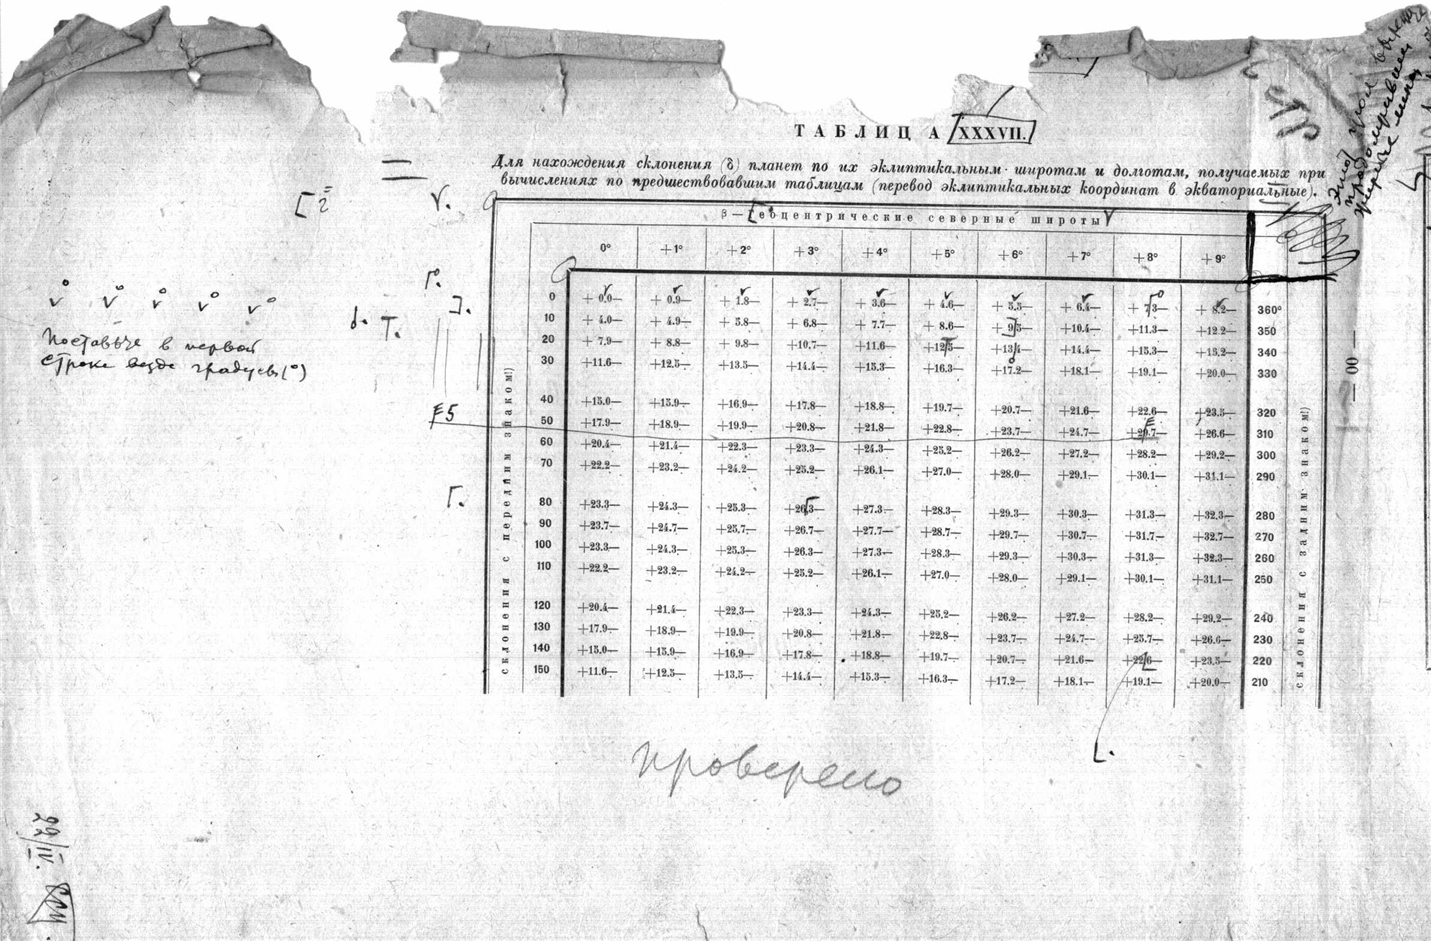 ТАБЛИЦА XXXVII.
Для нахождения склонения (δ) планет по их эклиптикальным широтам и долготам, получаемых при
вычислениях по предшествовавшим таблицам (перевод эклиптикальных координат в экваториальные).
β — Геоцентрические северные широты
0° +1° +2° +3° +4° +5° +6° +7° +8° +9°
0 + 0.0— + 0.9— + 1.8— + 2.7— + 3.6— + 4.6— + 5.5— + 6.4— + 7.3— + 8.2— 360°
10 + 4.0— + 4.9— + 5.8— + 6.8— + 7.7— + 8.6— + 9.5— +10.4— +11.3— +12.2— 350
20 + 7.9— + 8.8— + 9.8— +10.7— +11.6— +12.5— +13.4— +14.4— +15.3— +15.2— 340
30 +11.6— +12.5— +13.5— +14.4— +15.3— +16.3— +17.2— +18.1— +19.1— +20.0— 330
40 +15.0— +15.9— +16.9— +17.8— +18.8— +19.7— +20.7— +21.6— +22.6— +23.5— 320
50 +17.9— +18.9— +19.9— +20.8— +21.8— +22.8— +23.7— +24.7— +20.7— +26.6— 310
60 +20.4— +21.4— +22.3— +23.3— +24.3— +25.2— +26.2— +27.2— +28.2— +29.2— 300
70 +22.2— +23.2— +24.2— +25.2— +26.1— +27.0— +28.0— +29.1— +30.1— +31.1— 290
80 +23.3— +24.3— +25.3— +26.3— +27.3— +28.3— +29.3— +30.3— +31.3— +32.3— 280
90 +23.7— +24.7— +25.7— +26.7— +27.7— +28.7— +29.7— +30.7— +31.7— +32.7— 270
100 +23.3— +24.3— +25.3— +26.3— +27.3— +28.3— +29.3— +30.3— +31.3— +32.3— 260
110 +22.2— +23.2— +24.2— +25.2— +26.1— +27.0— +28.0— +29.1— +30.1— +31.1— 250
120 +20.4— +21.4— +22.3— +23.3— +24.3— +25.2— +26.2— +27.2— +28.2— +29.2— 240
130 +17.9— +18.9— +19.9— +20.8— +21.8— +22.8— +23.7— +24.7— +25.7— +26.6— 230
140 +15.0— +15.9— +16.9— +17.8— +18.8— +19.7— +20.7— +21.6— +22.6— +23.5— 220
150 +11.6— +12.5— +13.5— +14.4— +15.3— +16.3— +17.2— +18.1— +19.1— +20.0— 210
склонения с передним знаком!)
склонения с задним знаком!)
— 00 —
Поставьте в первой
строке везде градусы (°)
проверено
22/IV.